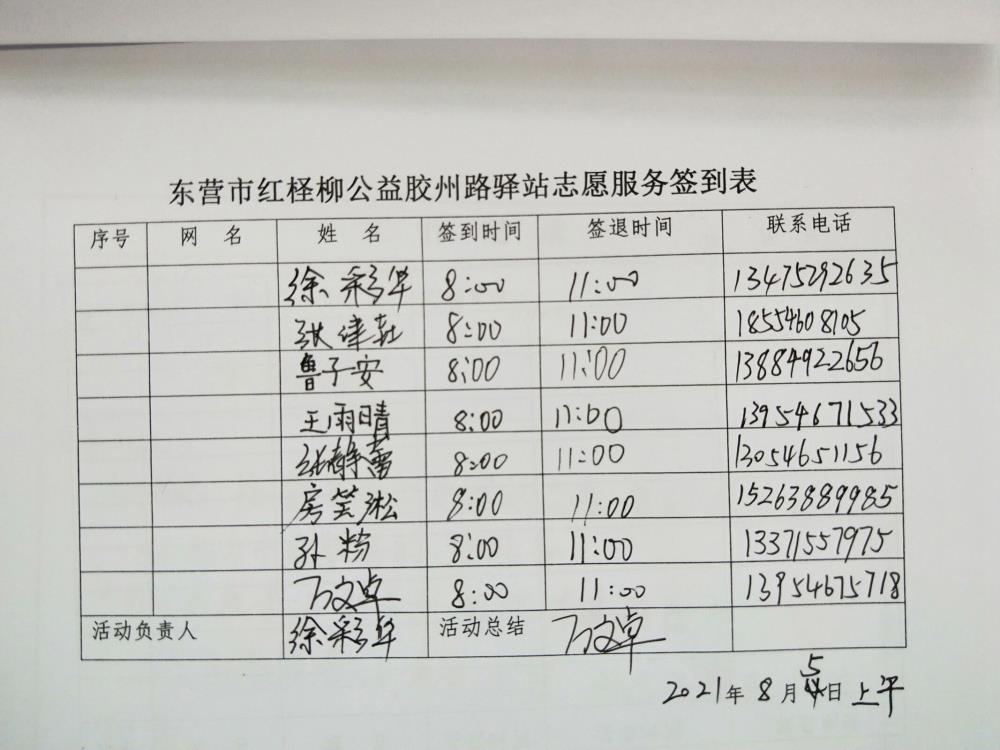 东营市红柽柳公益胶州路驿站志愿服务签到表
序号 网 名 姓 名 签到时间 签退时间 联系电话
徐彩华 8:00 11:00 13475292635
张建 8:00 11:00 18554608105
鲁子安 8:00 11:00 13884922656
王雨晴 8:00 11:00 13954671533
张静蕾 8:00 11:00 13054651156
房芸淞 8:00 11:00 15263889985
孙粉 8:00 11:00 13371557975
万文卓 8:00 11:00 13954675718
活动负责人 徐彩华 活动总结 万文卓
2021年 8月5日上午